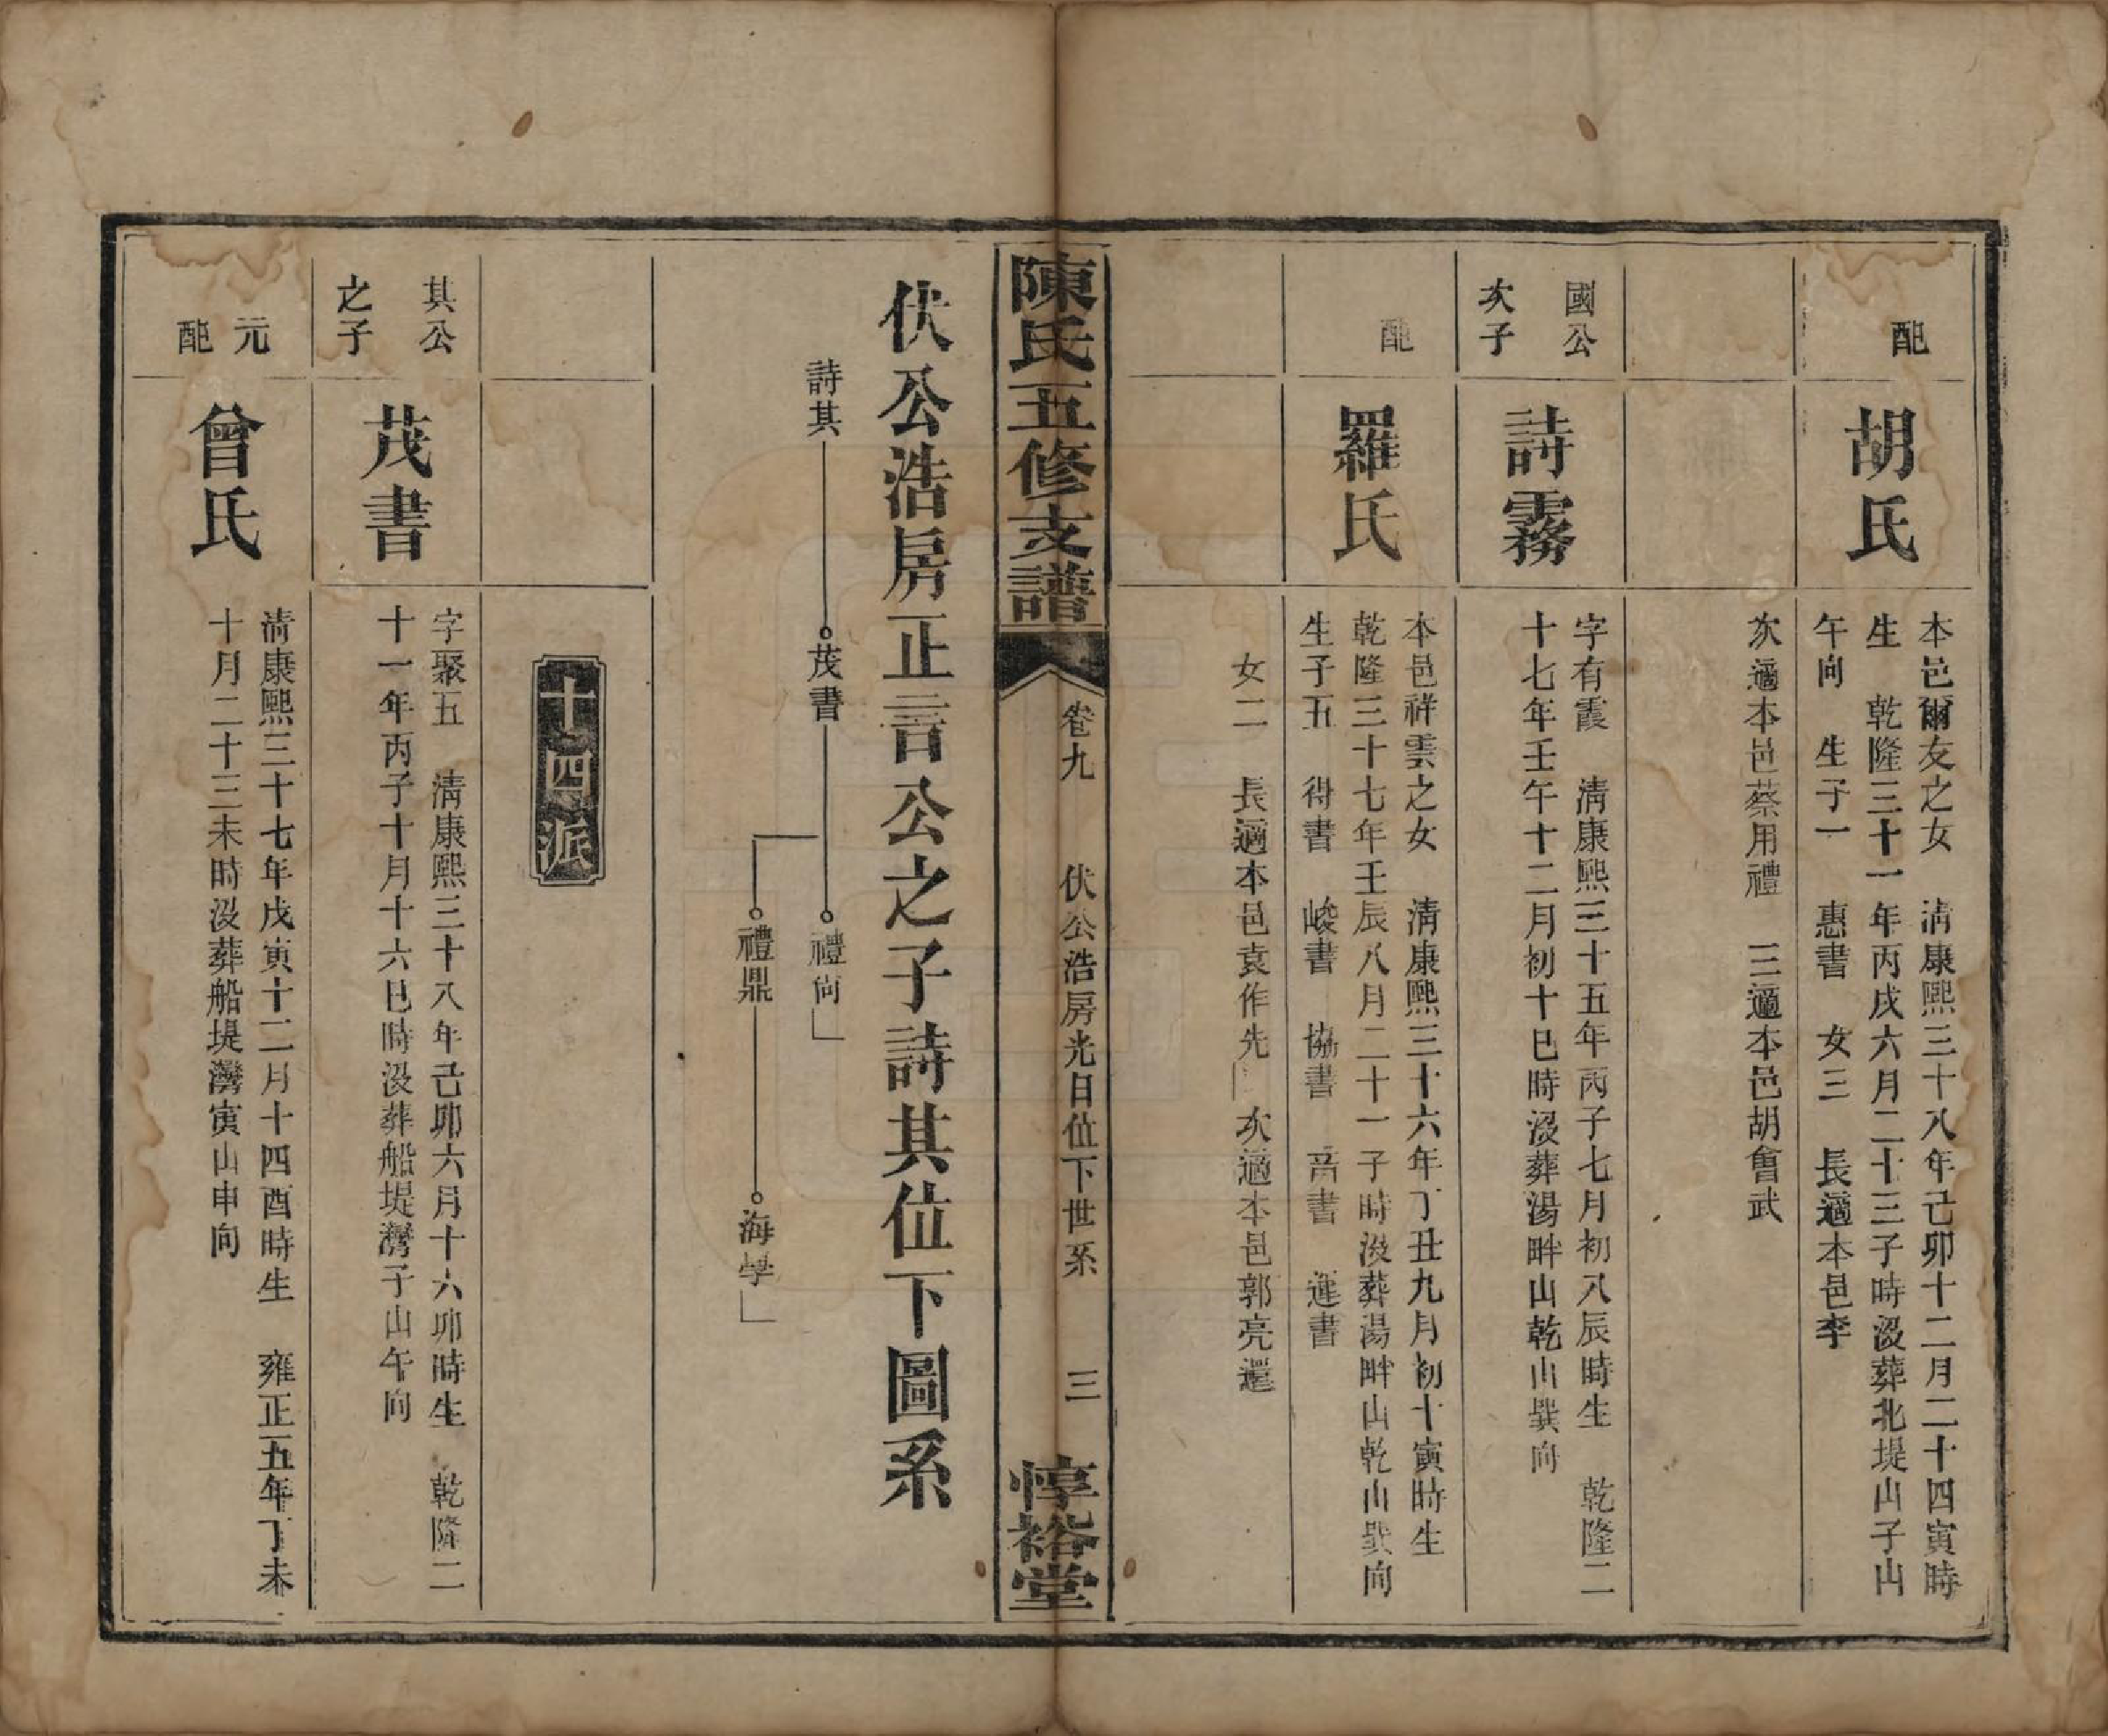 配
胡氏
本邑爾友之女　清康熙三十八年己卯十二月二十四寅時
生　乾隆三十一年丙戌六月二十三子時沒葬北堤山子山
午向　生子一　惠書　女三　長適本邑李
次適本邑蔡用禮　三適本邑胡會武
國公
次子
詩霧
字有霞　清康熙三十五年丙子七月初八辰時生　乾隆二
十七年壬午十二月初十巳時沒葬湯畔山乾山巽向
配
羅氏
本邑祥雲之女　清康熙三十六年丁丑九月初十寅時生
乾隆三十七年壬辰八月二十一子時沒葬湯畔山乾山巽向
生子五　得書　峻書　協書　高書　運書
女二　長適本邑袁作先　次適本邑郭亮還
陳氏五修支譜
卷九
伏公浩房光日位下世系
三
惇裕堂
伏公浩房正言公之子詩其位下圖系
詩其
茂書
禮尙
禮鼎
海學
十四派
其公
之子
茂書
字聚五　清康熙三十八年己卯六月十六卯時生　乾隆二
十一年丙子十月十六巳時沒葬船堤灣子山午向
元
配
曾氏
清康熙三十七年戊寅十二月十四酉時生　雍正五年丁未
十月二十三未時沒葬船堤灣寅山申向